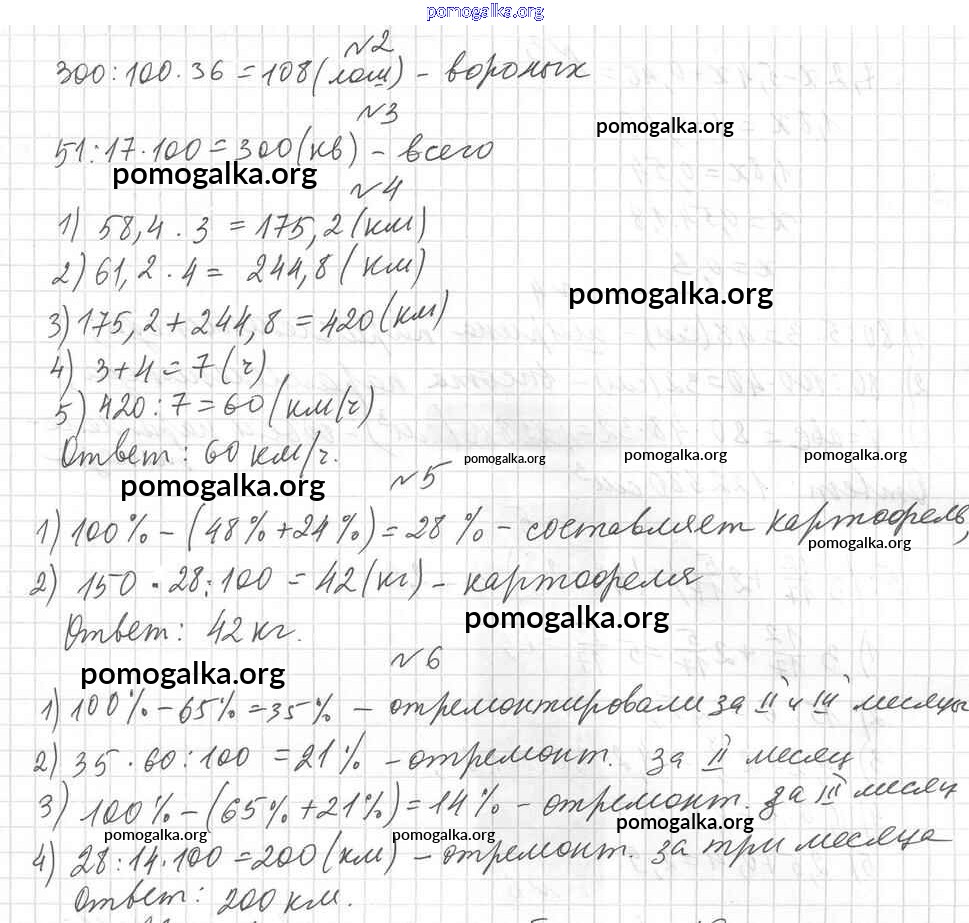 pomogalka.org
№2
300:100·36=108(лош) - вороных
№3
pomogalka.org
51:17·100=300(кв) - всего
pomogalka.org
№4
1) 58,4·3=175,2(км)
2) 61,2·4= 244,8(км)
pomogalka.org
3) 175,2+244,8=420(км)
4) 3+4=7(ч)
5) 420:7=60(км/ч)
Ответ: 60 км/ч.
pomogalka.org pomogalka.org pomogalka.org
№5
pomogalka.org
1) 100%-(48%+24%)=28% - составляет картофель,
pomogalka.org
2) 150·28:100=42(кг) - картофеля
Ответ: 42 кг.
pomogalka.org
№6
pomogalka.org
1) 100%-65%=35% - отремонтировали за II и III месяцы
2) 35·60:100=21% - отремонт. за II месяц
3) 100%-(65%+21%)=14% - отремонт. за III месяц
pomogalka.org pomogalka.org pomogalka.org
4) 28:14·100=200(км) - отремонт. за три месяца
Ответ: 200 км.